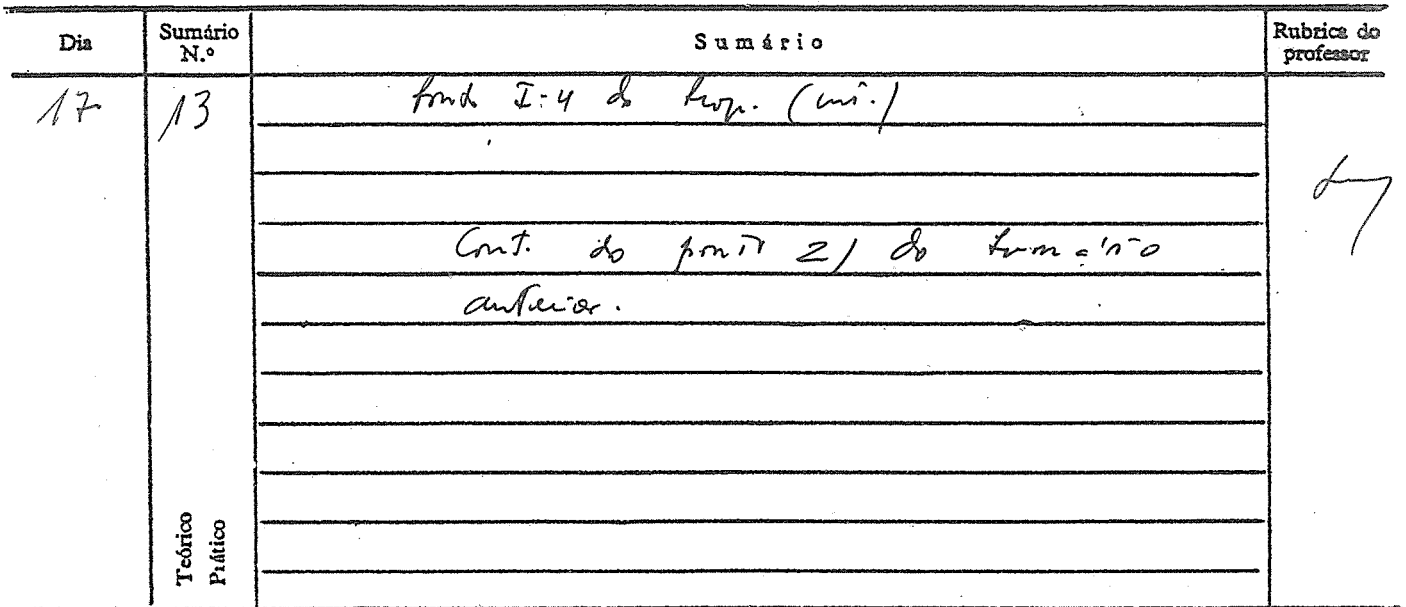 Dia
Sumário N.º
Sumário
Rubrica do professor
17
13
Ponto I:4 do Prog. (iní.)
Cont. do ponto 2) do sumário
anterior.
Teórico
Prático